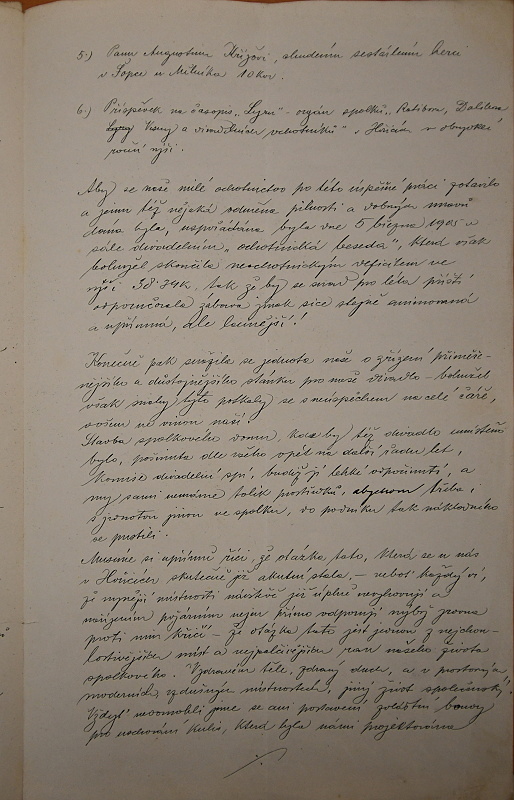 5.) Panu Augustinu Křížovi, slepému sestárlému herci
v Šopce u Mělníka 10 kor.
6.) Příspěvek na časopis „Lyru" - orgán spolků „Ratibora, Dalibora
Vesny a divadelních ochotníků" v Hořicích v obvyklé
roční výši.
Aby se naše milé ochotnictvo po této úspěšné práci zotavilo
a jemu též nějaká odměna pilnosti a dobrých mravů
dána byla, uspořádána byla dne 5 března 1905 v
sále divadelním „ochotnická beseda", která však
bohužel skončila neochotnickým deficitem ve
výši 38.74K, tak že by se snad pro léta příští
odporučovala zábava jinak sice stejně animovaná
a upřímná, ale lacinější!
Konečně pak snažila se jednota naše o zřízení přiměře-
nějšího a důstojnějšího stánku pro naše divadlo - bohužel
však snahy tyto potkaly se s neúspěchem na celé čáře,
ovšem ne vinou naší.
Stavba spolkového domu, kde by též divadlo umístěno
bylo, pošinuta dle všeho opět na další řadu let,
komise divadelní spí, budiž jí lehké odpočinutí, a
my sami nemáme tolik prostředků, abychom třeba i
s jednotou jinou ve spolku, do podniku tak nákladného
se pustili.
Musíme si upřímně říci, že otázka tato, která se u nás
v Hořicích skutečně již akutní stala, - neboť každý ví,
že nynější místnosti návštěvě již úplně nevyhovují a
nařízením požárním nejen přímo odporují nýbrž zrovna
proti nim křičí - že otázka tato jest jednou z nejchou-
lostivějších míst a nejpalčivějších ran našeho života
spolkového. V zdravém těle, zdravý duch, a v prostorných
moderních, vzdušných místnostech, jiný život společenský!
Vždyť nezmohli jsme se ani postavení zvláštní boudy
pro uschování kulis, která byla námi projektována